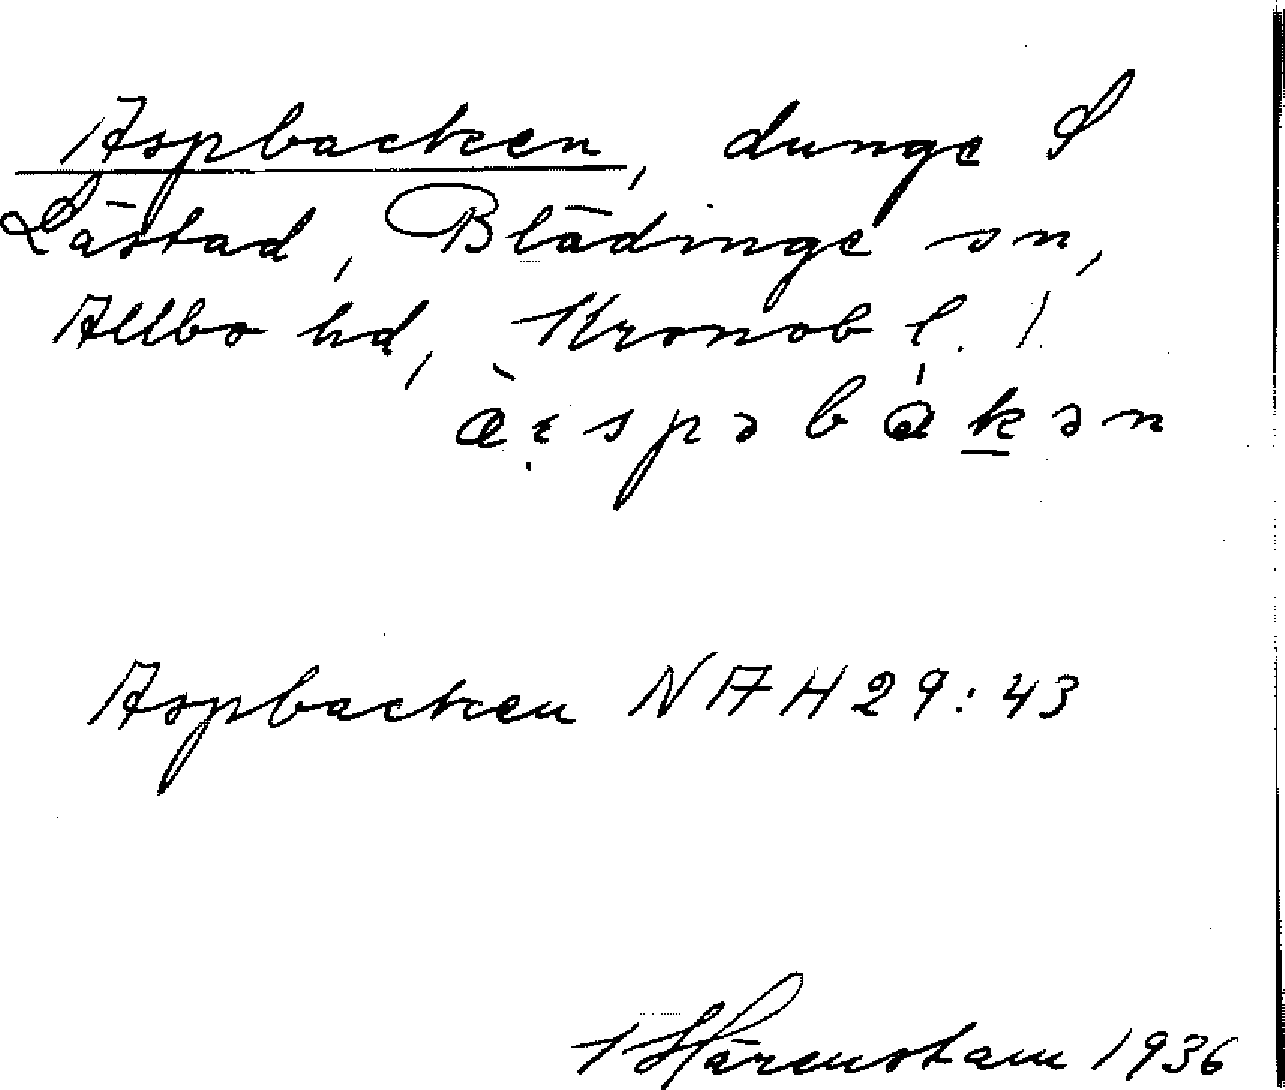 Aspbacken, dunge S
Lästad, Blädinge sn,
Allbo hd, Kronob l.
Aspbacken NAH 29:43
Härenstam 1936